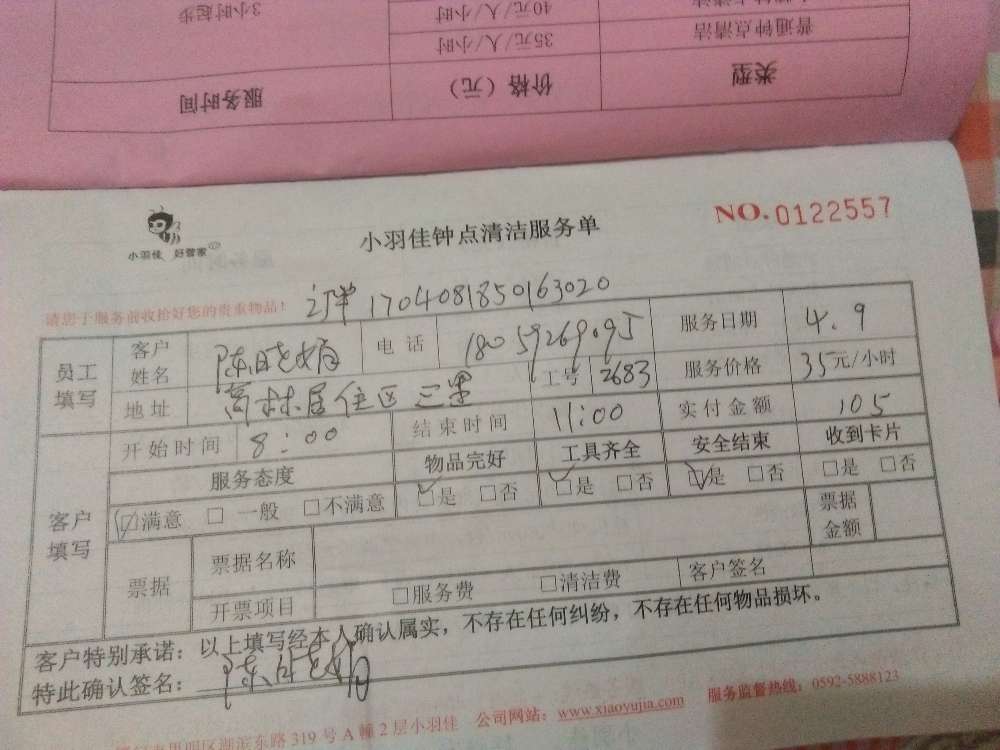 3小时起步
40元/人/小时
35元/人/小时
普通钟点清洁
服务时间
价格（元）
类型
小羽佳 好管家
小羽佳钟点清洁服务单
NO.0122557
请您于服务前收拾好您的贵重物品！
订单 1704081850163020
员工填写
客户姓名
陈晓娟
电话
18059269095
服务日期
4.9
地址
高林居住区三里
工号
2683
服务价格
35元/小时
客户填写
开始时间
8:00
结束时间
11:00
实付金额
105
服务态度
物品完好
工具齐全
安全结束
收到卡片
☑满意 □ 一般 □不满意
☑是 □否
☑是 □否
☑是 □否
□是 □否
票据
票据名称
票据金额
开票项目
□服务费 □清洁费
客户签名
客户特别承诺：以上填写经本人确认属实，不存在任何纠纷，不存在任何物品损坏。
特此确认签名：陈晓娟
湖滨东路319号A幢2层小羽佳 公司网站：www.xiaoyujia.com 服务监督热线：0592-5888123